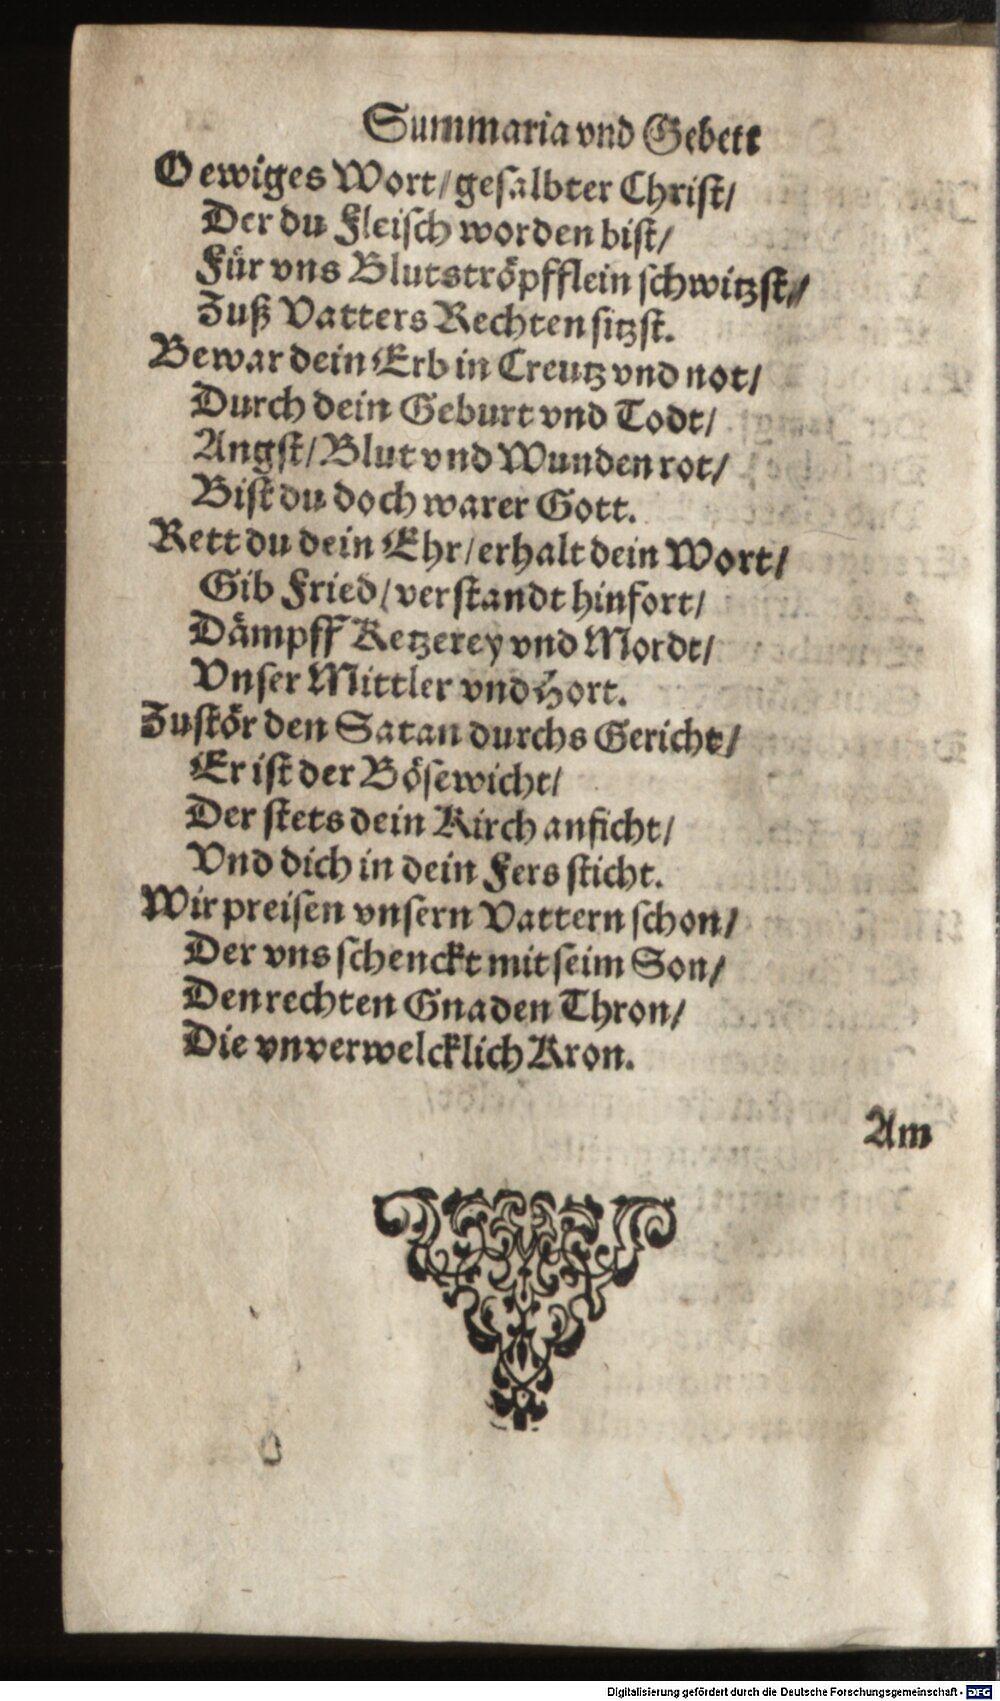 Summaria vnd Gebett
O ewiges Wort/ gesalbter Christ/
Der du Fleisch worden bist/
Für vns Blutströpfflein schwitzst/
Zuß Vatters Rechten sitzst.
Bewar dein Erb in Creutz vnd not/
Durch dein Geburt vnd Todt/
Angst/ Blut vnd Wunden rot/
Bist du doch warer Gott.
Rett du dein Ehr/ erhalt dein Wort/
Gib Fried/ verstandt hinfort/
Dämpff Ketzerey vnd Mordt/
Vnser Mittler vnd Hort.
Zustör den Satan durchs Gericht/
Er ist der Bösewicht/
Der stets dein Kirch anficht/
Vnd dich in dein Fers sticht.
Wir preisen vnsern Vattern schon/
Der vns schenckt mit seim Son/
Den rechten Gnaden Thron/
Die vnverwelcklich Kron.
Am
Digitalisierung gefördert durch die Deutsche Forschungsgemeinschaft - DFG